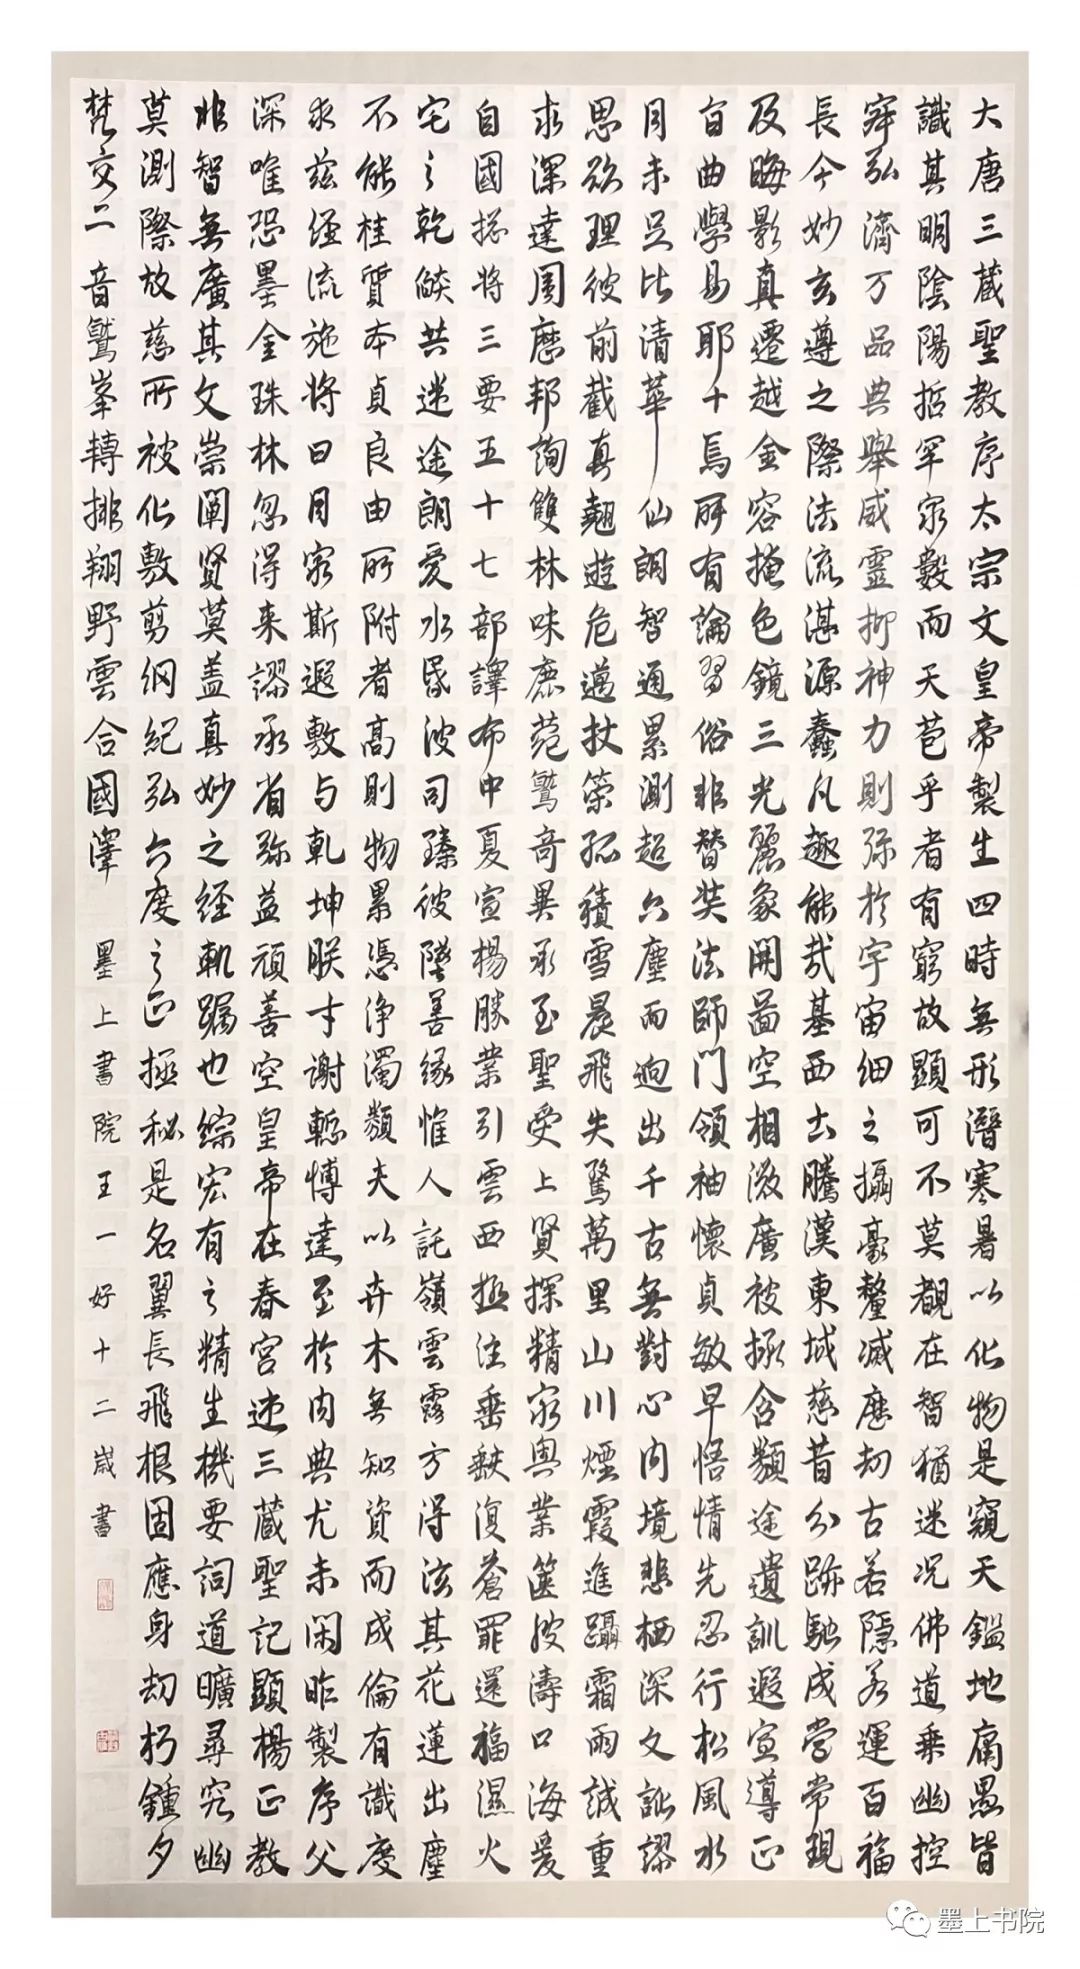 大唐三藏聖教序太宗文皇帝製生四時無形潛寒暑以化物是窺天鑑地庸愚皆
識其明陰陽括罕窮數而天苞乎者有窮故顯可不莫覩在智猶迷況佛道乘幽控
寂弘濟万品典舉威靈抑神力則弥於宇宙細之攝豪釐滅歷劫古若隱若運百福
長今妙玄遵之際法流湛源蠢凡趣能哉基西古騰漢東域慈昔分跡馳成當常現
及晦影真遷越金容掩色鏡三光麗象開圖空相滋廣被拯含類途遺訓遐宣導正
盲曲學易耶十焉所有論習俗非替奘法師門領袖懷貞敏早悟情先忍行松風水
月未足比清華仙朗智通累測超六塵而迥出千古無對心内境悲栖深文訛謬
思欲理彼前截真翹遊危邁杖策孤積雪晨飛失驚萬里山川煙霞進躡霜雨誠重
求深達周歷邦詢雙林味鹿菀鷲奇異承至聖受上賢探精窮奥業篋波濤口海爰
自國捴將三要五十七部譯布中夏宣楊勝業引雲西極注垂缺復蒼罪還福濕火
宅之乾燄共迷途朗愛水昏波司臻彼墜善緣惟人託嶺雲露方得泫其花蓮出塵
不能桂質本貞良由所附者高則物累憑浄濁類夫以卉木無知資而成倫有識度
求茲經流施將日月窮斯遐敷与乹坤朕才謝慙慱達至於内典尤未閑昨製序父
深唯恐墨金珠林忽得来謬承省弥益頑善空皇帝在春宮述三藏聖記顯楊正教
非智無廣其文崇闡賢莫蓋真妙之經軌躅也綜宏有之精生機要詞道曠尋究幽
莫測際故慈所被化敷剪綱紀弘六度之正拯秘是名翼長飛根固應身劫朽鍾夕
梵交二音鷲峯轉排翔野雲合國澤
墨上書院王一好十二歲書
墨上书院